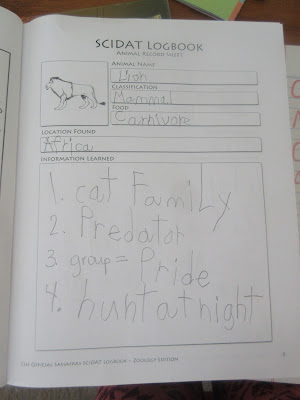 SCIDAT LOGBOOK
ANIMAL RECORD SHEET
ANIMAL NAME
Lion
CLASSIFICATION
Mammal
FOOD
Carnivore
LOCATION FOUND
Africa
INFORMATION LEARNED
1. cat Family
2. Predator
3. group = Pride
4. hunt at night
SCIDAT LOGBOOK - ZOOLOGY EDITION